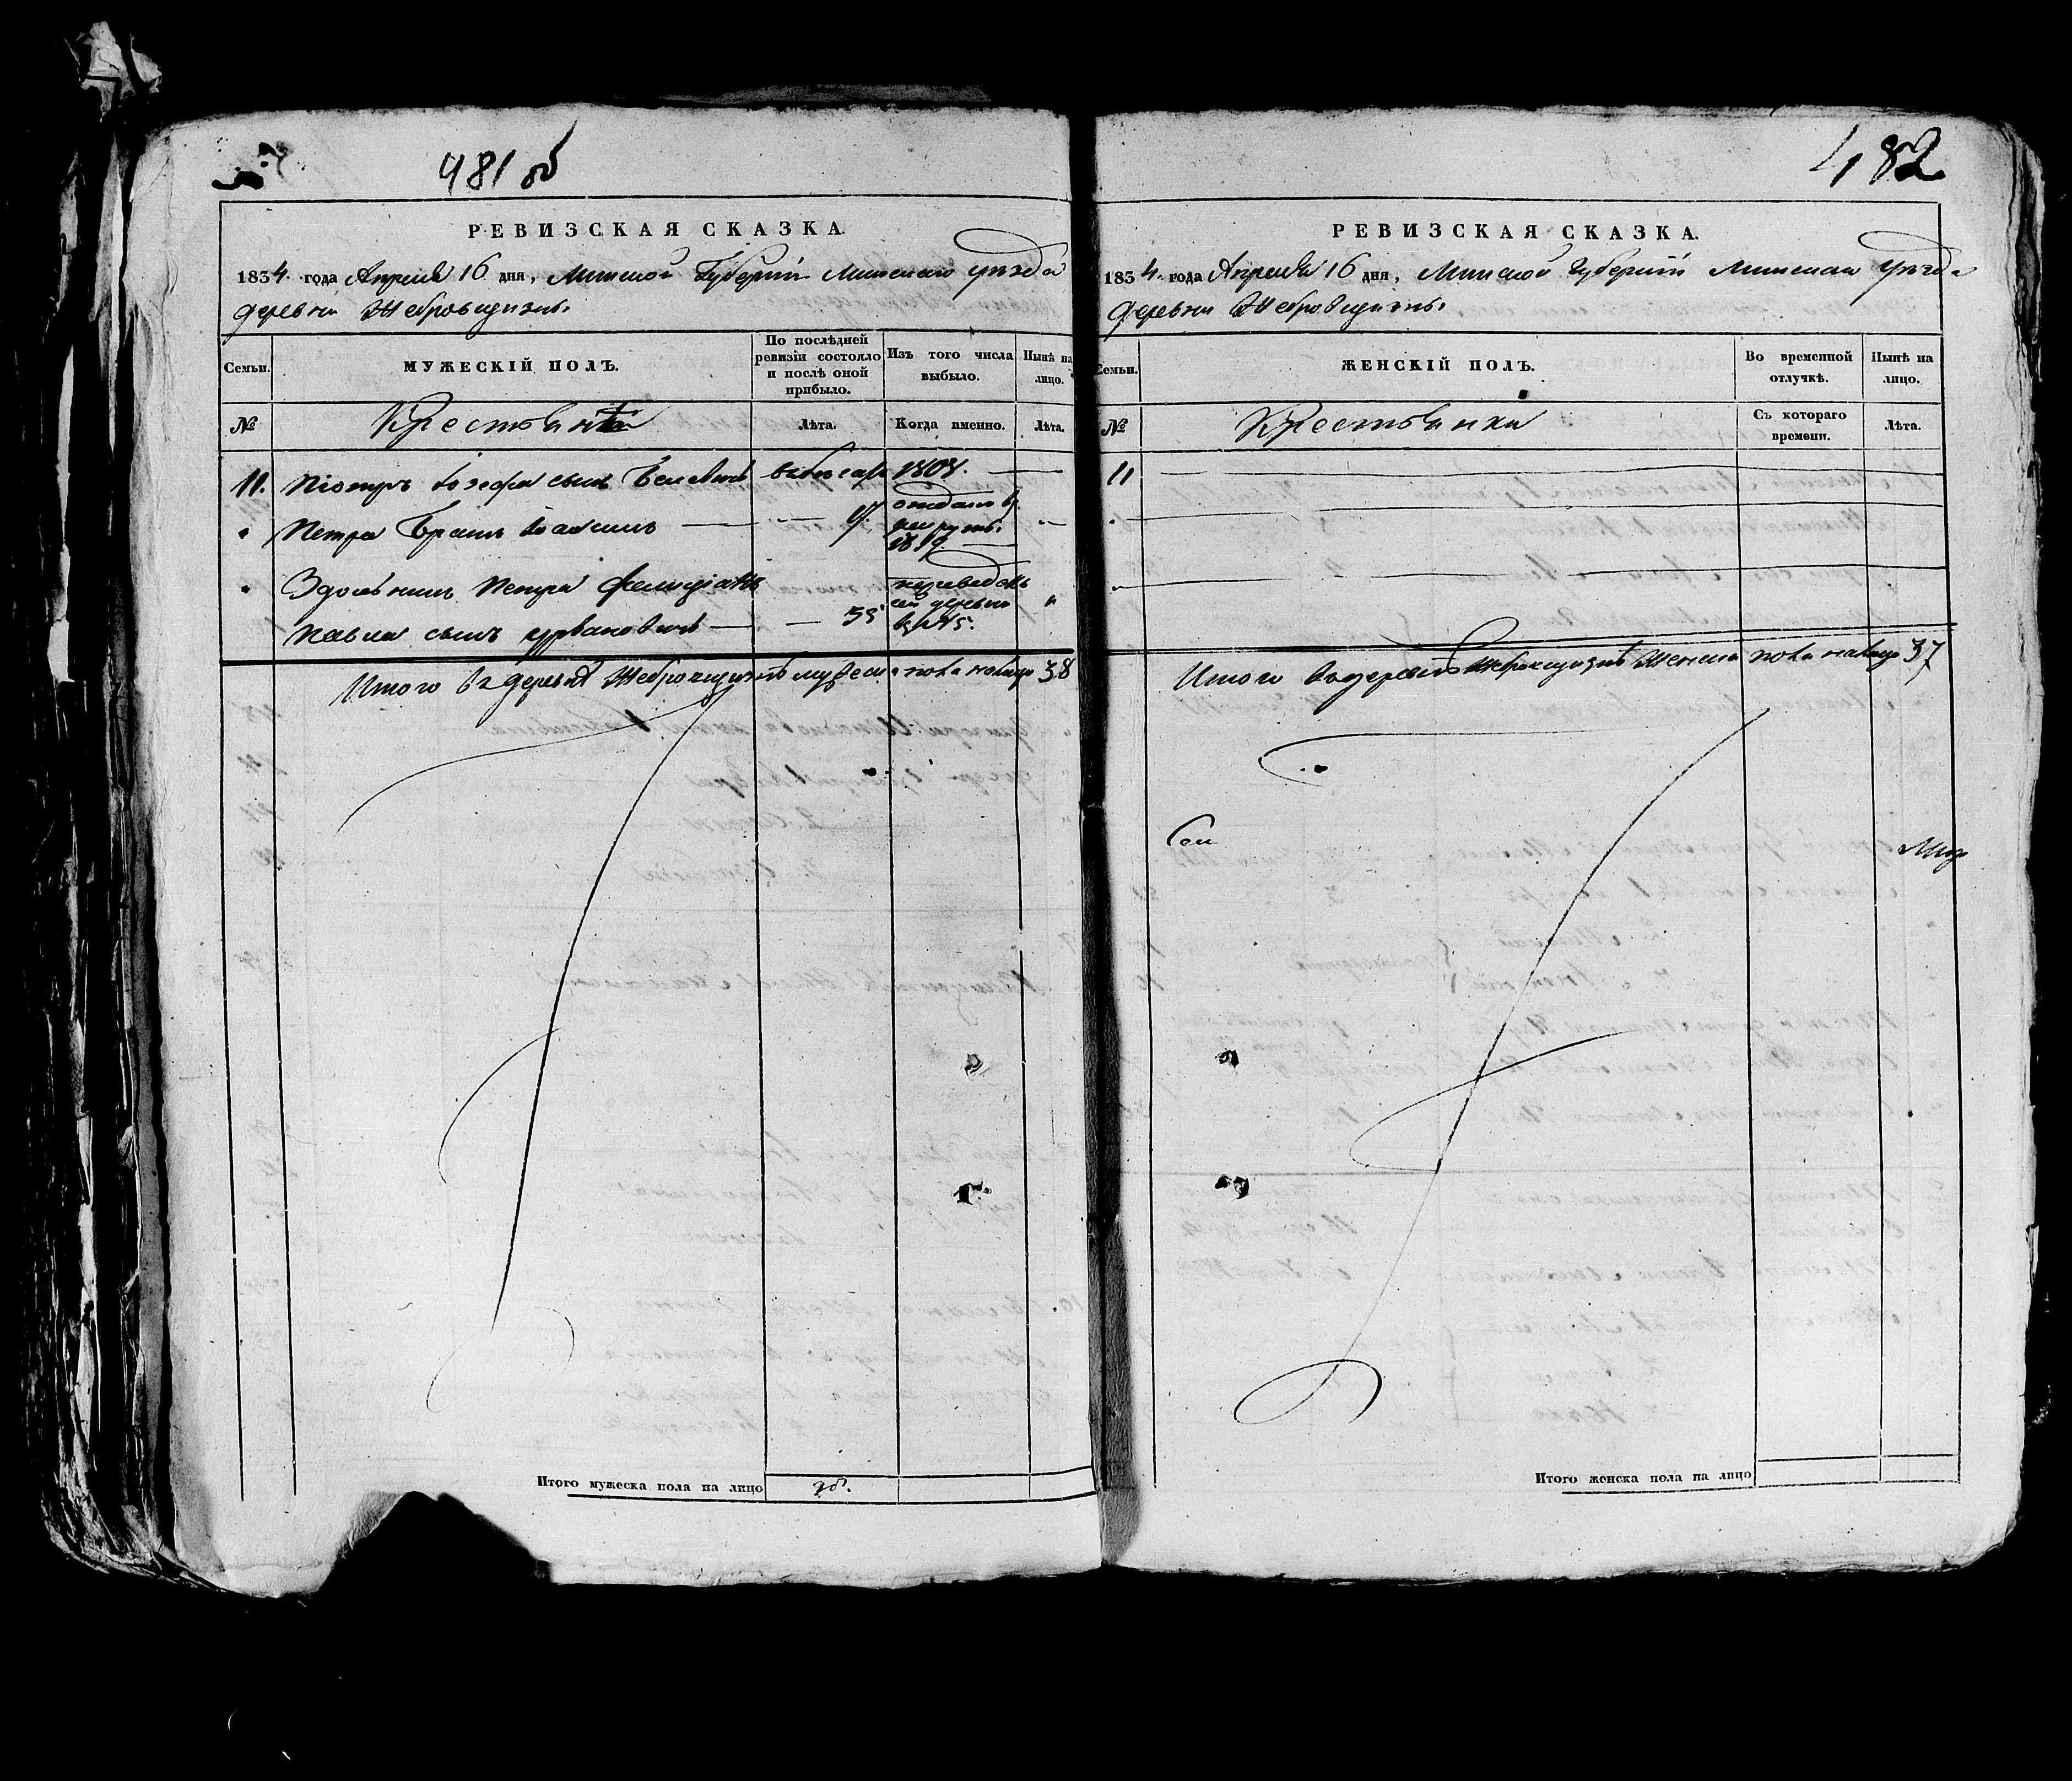 481 об
РЕВИЗСКАЯ СКАЗКА.
1834. года Апреля 16 дня, Минской Губерніи Минскаго уезда
деревни Жебровщизны.
Семьи.
МУЖЕСКІЙ ПОЛЪ.
По послѣдней ревизіи состояло и послѣ оной прибыло.
Изъ того числа выбыло.
Нынѣ на лицо.
№
Крестьяне
Лѣта.
Когда именно.
Лѣта.
11. Піотръ Іозефа сынъ
Петра Братъ
отданъ въ
рекруты.
Здольникъ Петра Фелиціанъ
сей деревни
Павла сынъ 55
Итого въ деревнѣ Жебровщизнѣ мужеска пола налицо 38
Итого мужеска пола на лицо
38.
482
РЕВИЗСКАЯ СКАЗКА.
1834. года Апреля 16 дня, Минской Губерніи Минскаго уезда
деревни Жебровщизны.
Семьи.
ЖЕНСКІЙ ПОЛЪ.
Во временной отлучкѣ.
Нынѣ на лицо.
№
Крестьянки
Съ котораго времени.
Лѣта.
11
Итого въ деревнѣ Жебровщизнѣ Женска пола налицо 37
Итого женска пола на лицо